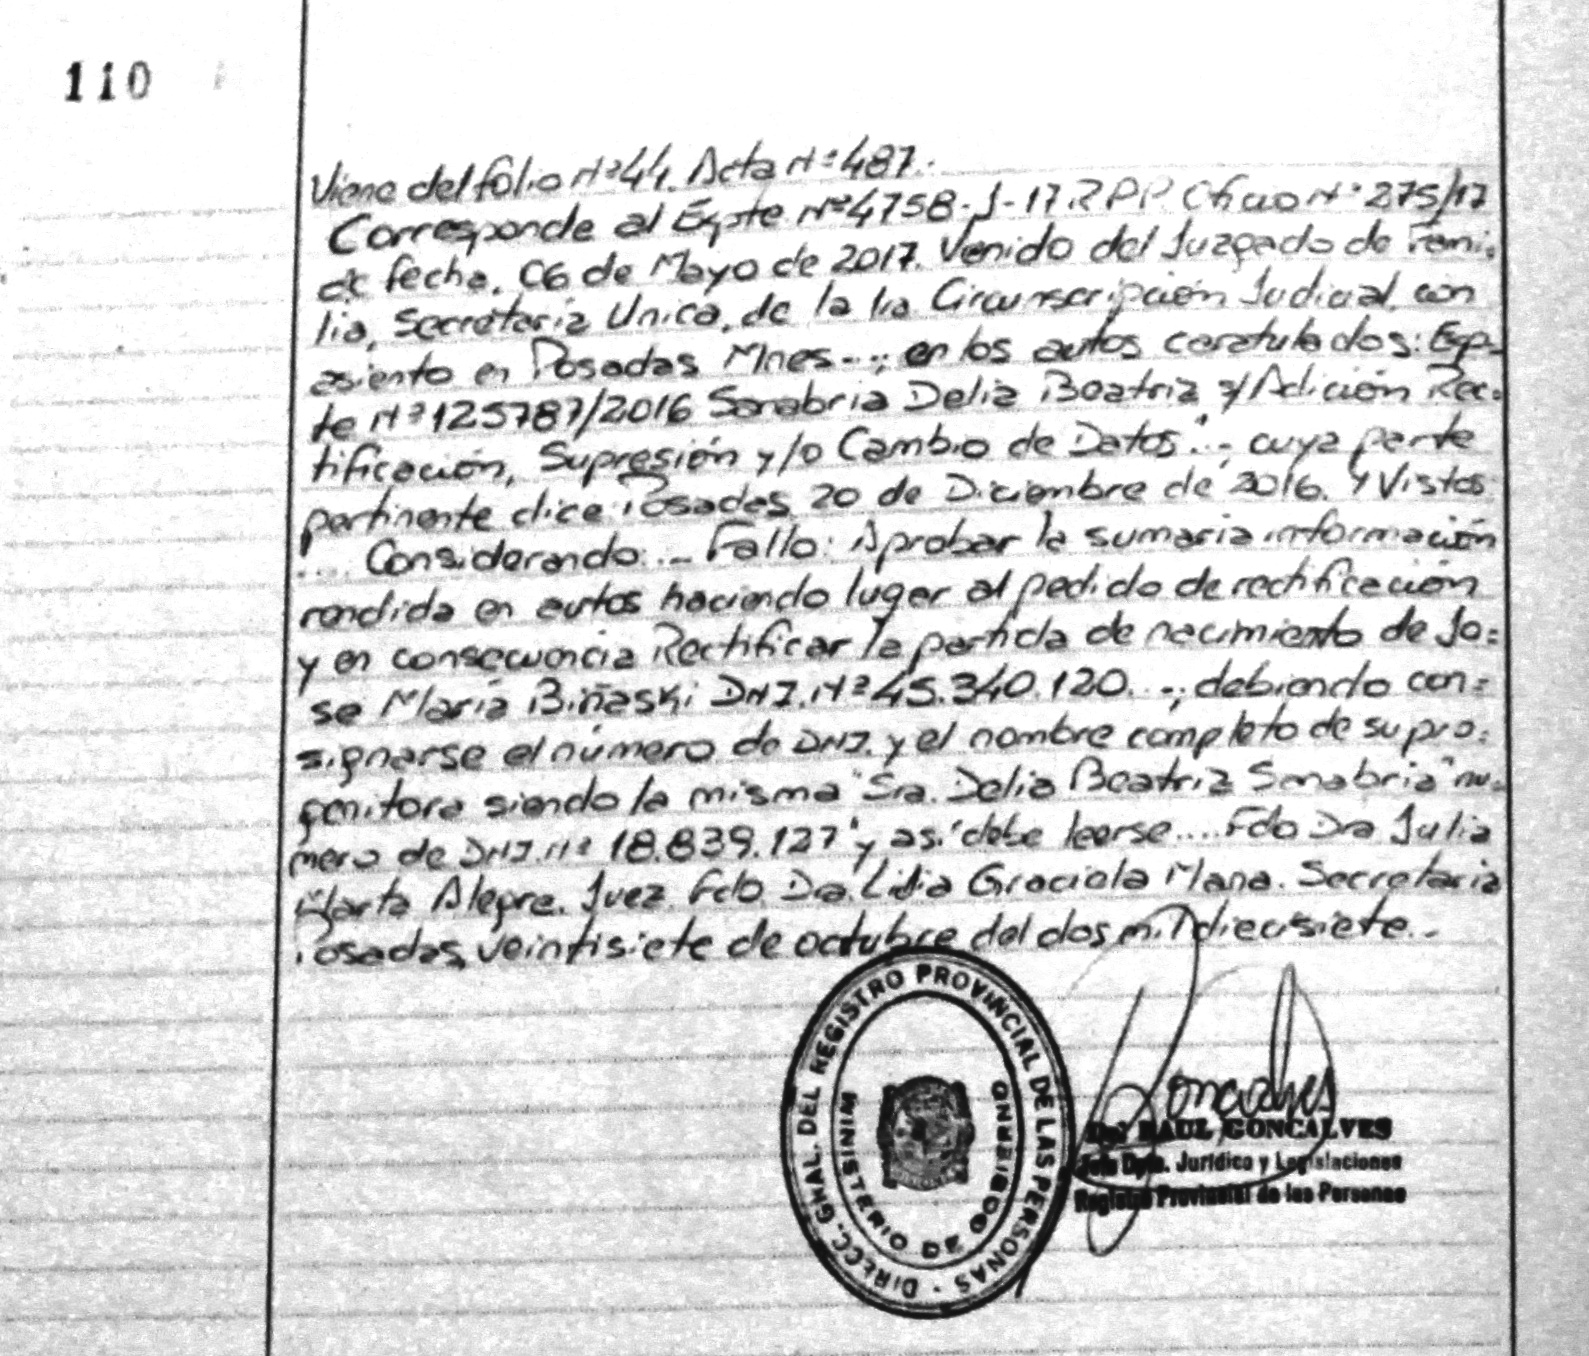 110
Viene del folio Nº 44. Acta Nº 487.
Corresponde al Expte Nº 4758-J-17 RPP Oficio Nº 275/17
de fecha, 06 de Mayo de 2017. Venido del Juzgado de Fami-
lia, Secretaría Unica, de la 1ra Circunscripción Judicial, con
asiento en Posadas Mnes..; en los autos caratulados: Exp-
te Nº 125787/2016 Sanabria Delia Beatriz s/Adición Rec-
tificación, Supresión y/o Cambio de Datos"..; cuya parte
pertinente dice: Posadas, 20 de Diciembre de 2016. Y Vistos
.... Considerando: .. Fallo: Aprobar la sumaria información
rendida en autos haciendo lugar al pedido de rectificación
y en consecuencia Rectificar la partida de nacimiento de Jo=
se María Biñaski DNI. Nº 45.340.120. ..; debiendo con=
signarse el número de DNI. y el nombre completo de su pro=
genitora siendo la misma "Sra. Delia Beatriz Sanabria" nu-
mero de DNI. Nº 18.839.127" y así debe leerse.... Fdo Dra Julia
Marta Alegre. Juez. Fdo. Dra. Lidia Graciela Mana. Secretaria
Posadas, veintisiete de octubre del dos mil diecisiete..
DIRECC. GRAL. DEL REGISTRO PROVINCIAL DE LAS PERSONAS -
MINISTERIO DE GOBIERNO
Goncalves
RAUL GONCALVES
Jefe Dpto. Jurídico y Legislaciones
Registro Provincial de las Personas